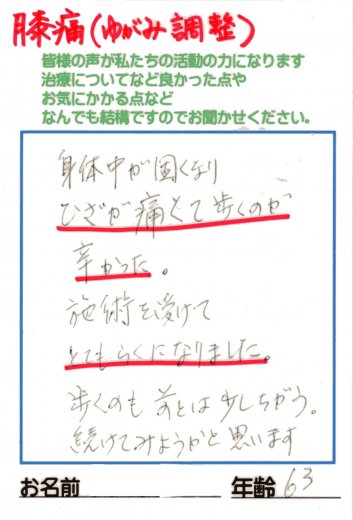 膝痛(ゆがみ調整)
皆様の声が私たちの活動の力になります
治療についてなど良かった点や
お気にかかる点など
なんでも結構ですのでお聞かせください。
身体中が固くなり
ひざが痛くて歩くのが
辛かった。
施術を受けて
とてもらくになりました。
歩くのも前とは少しちがう。
続けてみようかと思います
お名前 年齢 63